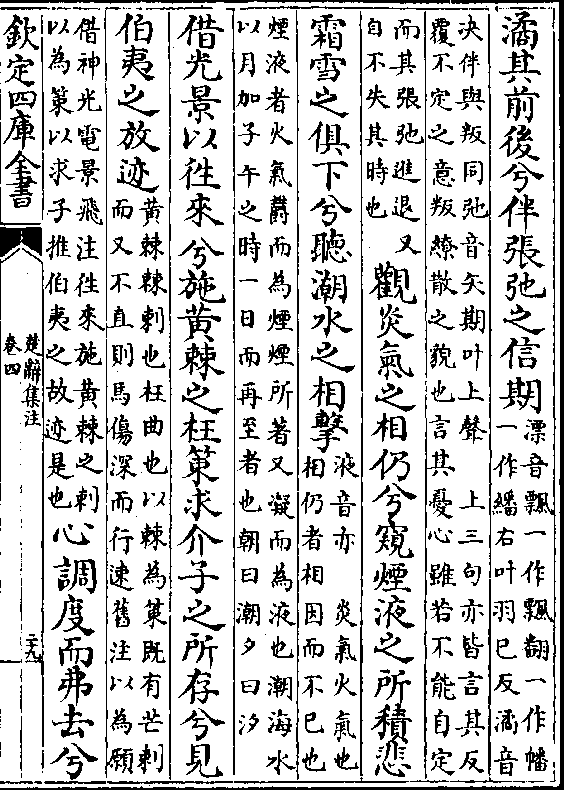 潏其前後兮伴張弛之信期
漂音飄一作飄翻一作幡
一作繙右叶羽已反潏音
決伴與叛同弛音矢期叶上聲　上三句亦皆言其反
覆不定之意叛繚散之貌也言其憂心雖若不能自定
而其張弛進退又
自不失其時也
觀炎氣之相仍兮窺煙液之所積悲
霜雪之俱下兮聽潮水之相擊
液音亦　炎氣火氣也
相仍者相因而不已也
煙液者火氣鬱而為煙煙所著又凝而為液也潮海水
以月加子午之時一日而再至者也朝曰潮夕曰汐
借光景以往來兮施黃棘之枉策求介子之所存兮見
伯夷之放迹
黃棘棘刺也枉曲也以棘為策既有芒刺
而又不直則馬傷深而行速舊注以為願
借神光電景飛注往來施黃棘之刺
以為策以求子推伯夷之故迹是也
心調度而弗去兮
欽定四庫全書
楚辭集注
卷四
二十九